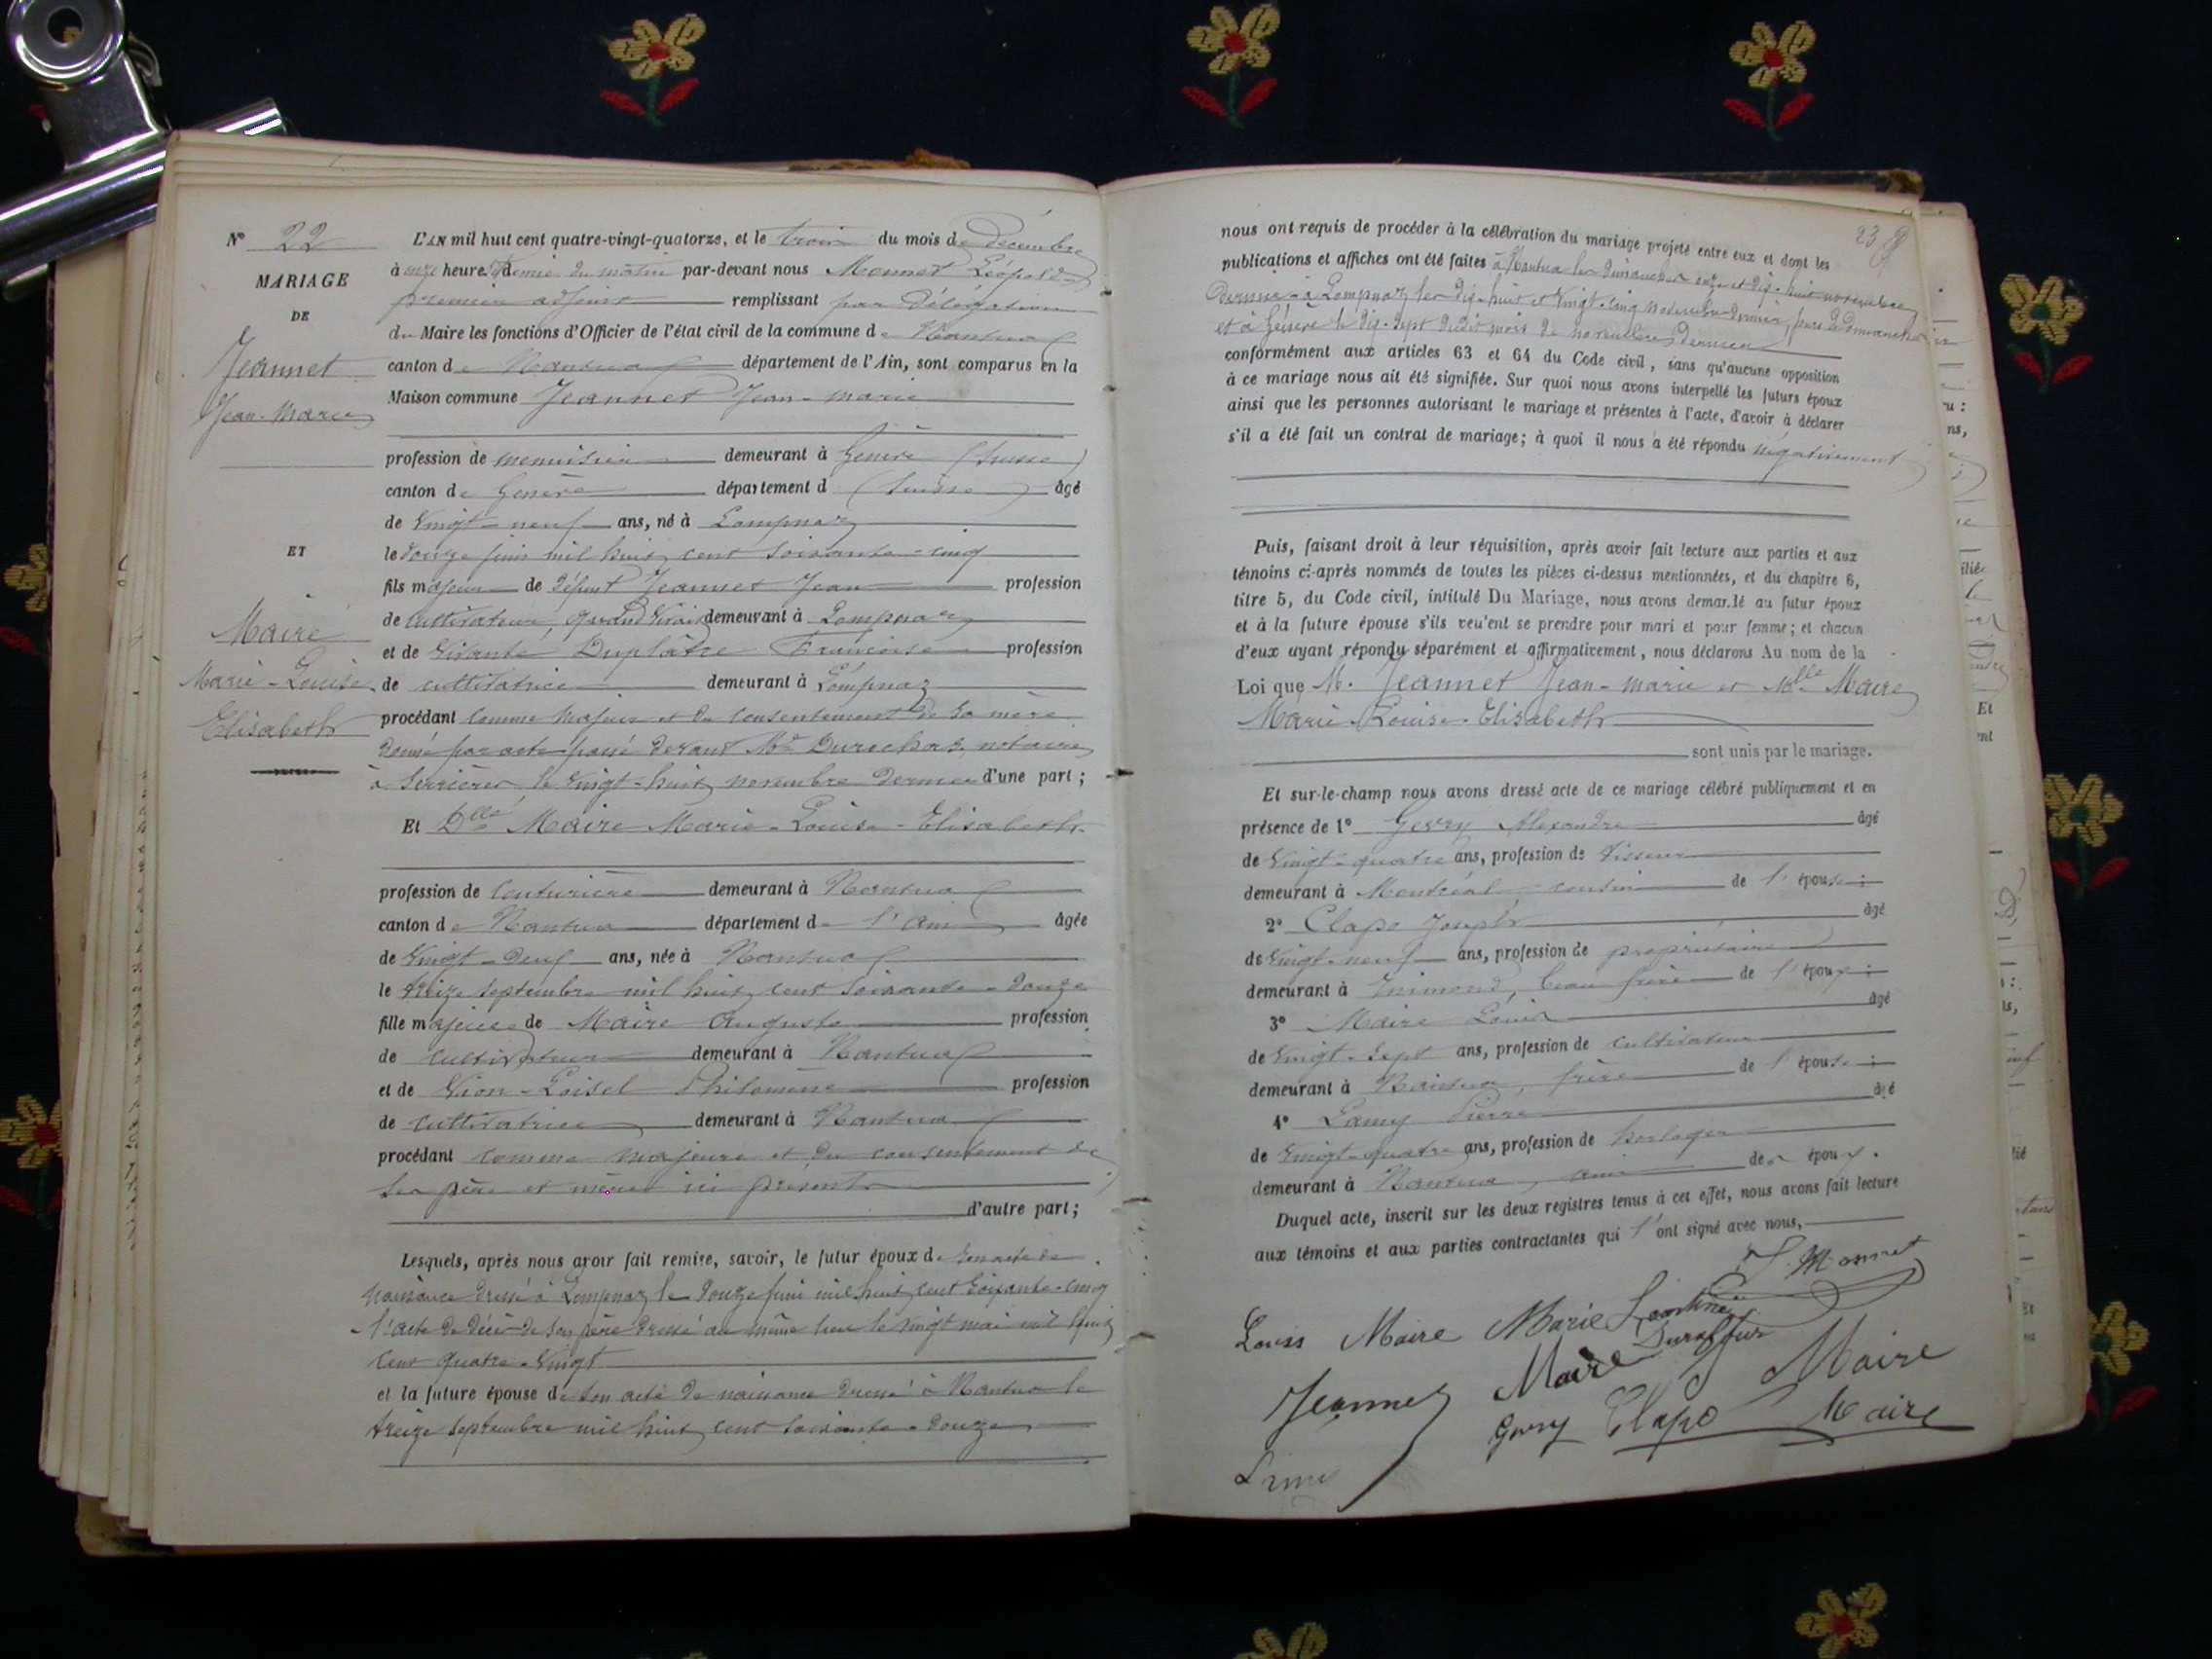 N° 22
MARIAGE
DE
Jeannet
Jean-Marie
ET
Maire
Marie-Louise
Elisabeth
L'AN mil huit cent quatre-vingt-quatorze, et le trois du mois de décembre
à onze heures demie du matin par-devant nous Monnet Léopold
premier adjoint remplissant par délégation
du Maire les fonctions d'Officier de l'état civil de la commune de Nantua
canton de Nantua département de l'Ain, sont comparus en la
Maison commune Jeannet Jean-marie
profession de menuisier demeurant à Genève (Suisse)
canton de Genève département d (Suisse) âgé
de vingt-neuf ans, né à Lompnaz
le douze juin mil huit cent soixante-cinq
fils majeur de défunt Jeannet Jean profession
de cultivateur, quand vivait demeurant à Lompnaz
et de vivante Duplâtre Françoise profession
de cultivatrice demeurant à Lompnaz
procédant comme majeur et du consentement de sa mère
donné par acte passé devant Me notaire
à Serrières le vingt-huit novembre dernier d'une part;
Et Dlle Maire Marie-Louise-Elisabeth
profession de couturière demeurant à Nantua
canton de Nantua département de l'Ain âgée
de vingt-deux ans, née à Nantua
le treize septembre mil huit cent soixante-douze
fille majeure de Maire Auguste profession
de cultivateur demeurant à Nantua
et de Vion-Loisel Philomène profession
de cultivatrice demeurant à Nantua
procédant comme majeure et du consentement de
ses père et mère ici présents
d'autre part;
Lesquels, après nous avoir fait remise, savoir, le futur époux de son acte de
naissance dressé à Lompnaz le douze juin mil huit cent soixante-cinq
l'acte de décès de son père dressé au même lieu le vingt mai mil huit
cent quatre-vingt
et la future épouse de son acte de naissance dressé à Nantua le
treize septembre mil huit cent soixante-douze
23
nous ont requis de procéder à la célébration du mariage projeté entre eux et dont les
publications et affiches ont été faites à Nantua les dimanches onze et dix-huit novembre
dernier à Lompnaz les dix-huit et vingt-cinq novembre dernier, jours de dimanche
et à Genève le dix-sept dudit mois de novembre dernier
conformément aux articles 63 et 64 du Code civil, sans qu'aucune opposition
à ce mariage nous ait été signifiée. Sur quoi nous avons interpellé les futurs époux
ainsi que les personnes autorisant le mariage et présentes à l'acte, d'avoir à déclarer
s'il a été fait un contrat de mariage; à quoi il nous a été répondu négativement
Puis, faisant droit à leur réquisition, après avoir fait lecture aux parties et aux
témoins ci-après nommés de toutes les pièces ci-dessus mentionnées, et du chapitre 6,
titre 5, du Code civil, intitulé Du Mariage, nous avons demandé au futur époux
et à la future épouse s'ils veulent se prendre pour mari et pour femme; et chacun
d'eux ayant répondu séparément et affirmativement, nous déclarons Au nom de la
Loi que M. Jeannet Jean-marie et Mlle Maire
Marie-Louise-Elisabeth
sont unis par le mariage.
Et sur-le-champ nous avons dressé acte de ce mariage célébré publiquement et en
présence de 1° Gevry Alexandre âgé
de vingt-quatre ans, profession de tisseur
demeurant à Montréal cousin de l'épouse;
2° Clapo Joseph âgé
de vingt-neuf ans, profession de propriétaire
demeurant à Inimond, beau frère de l'époux;
3° Maire Louis âgé
de vingt-sept ans, profession de cultivateur
demeurant à Nantua, frère de l'épouse;
4° Lamy Pierre âgé
de vingt-quatre ans, profession de horloger
demeurant à Nantua, ami des époux.
Duquel acte, inscrit sur les deux registres tenus à cet effet, nous avons fait lecture
aux témoins et aux parties contractantes qui l'ont signé avec nous,
Monnet
Louis Maire Marie
Duraffour
Jeannet Maire Maire
Gevry Clapo Maire